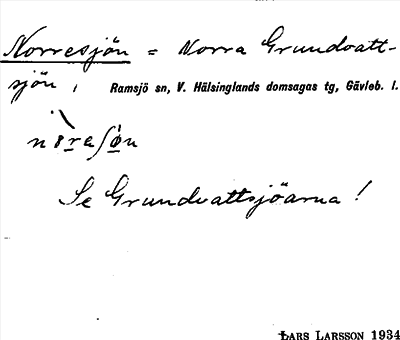 Norresjön = Norra Grundvatt-
sjön, Ramsjö sn, V. Hälsinglands domsagas tg, Gävleb. l.
Se Grundvattsjöarna!
LARS LARSSON 1934